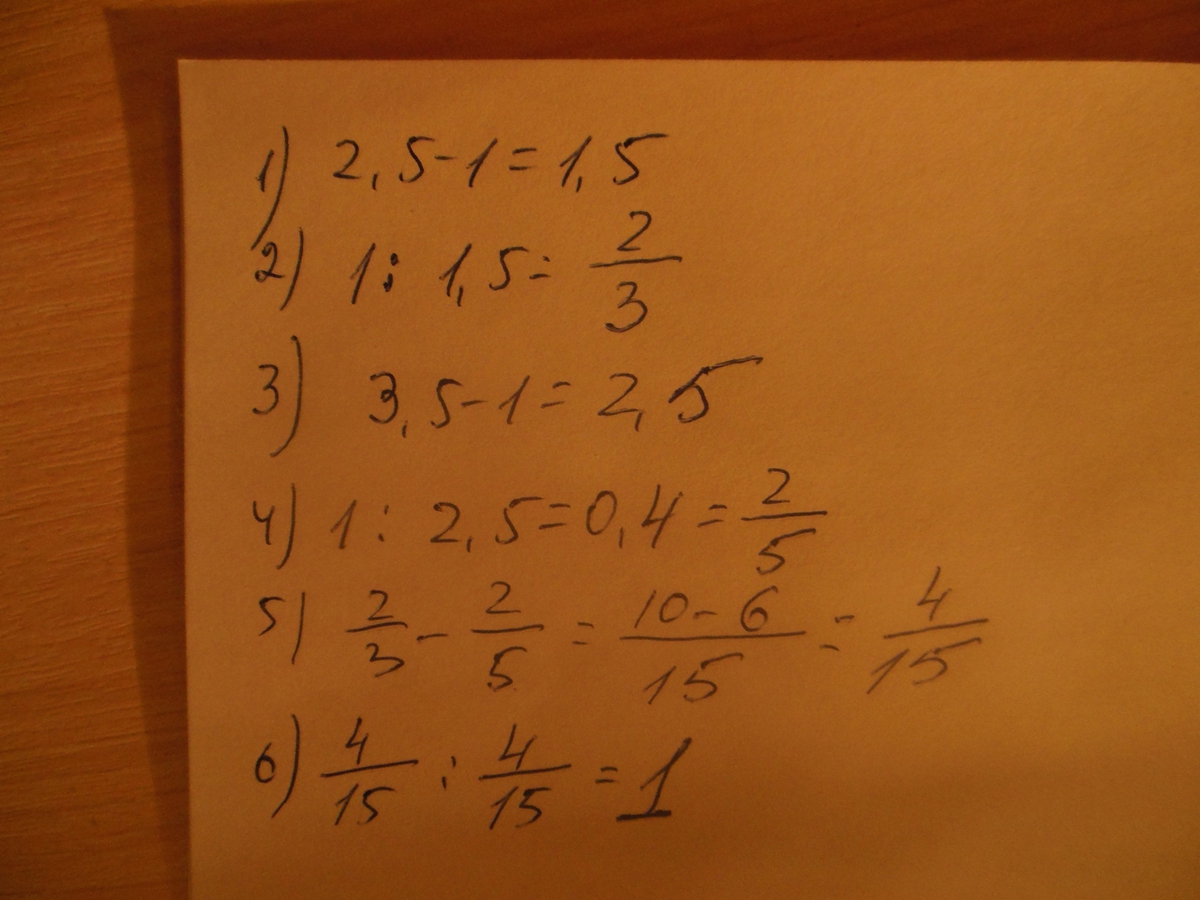 1) 2,5-1=1,5
2) 1: 1,5= 2/3
3) 3,5-1=2,5
4) 1: 2,5=0,4=2/5
5) 2/3-2/5=10-6/15=4/15
6) 4/15:4/15=1